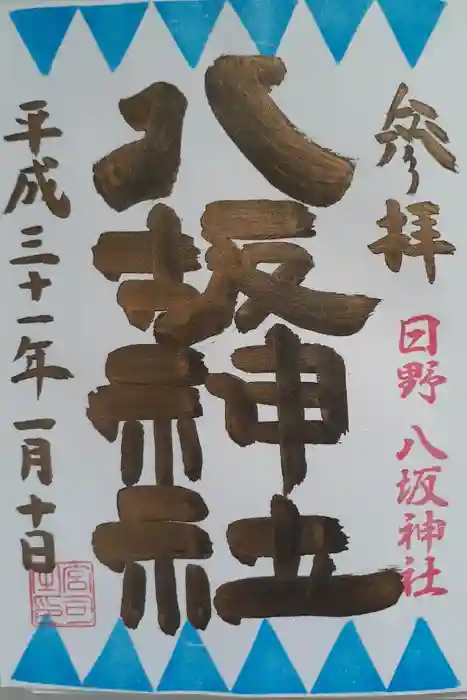 参拝
日野八坂神社
八坂神社
平成三十一年一月十日
宮司之印